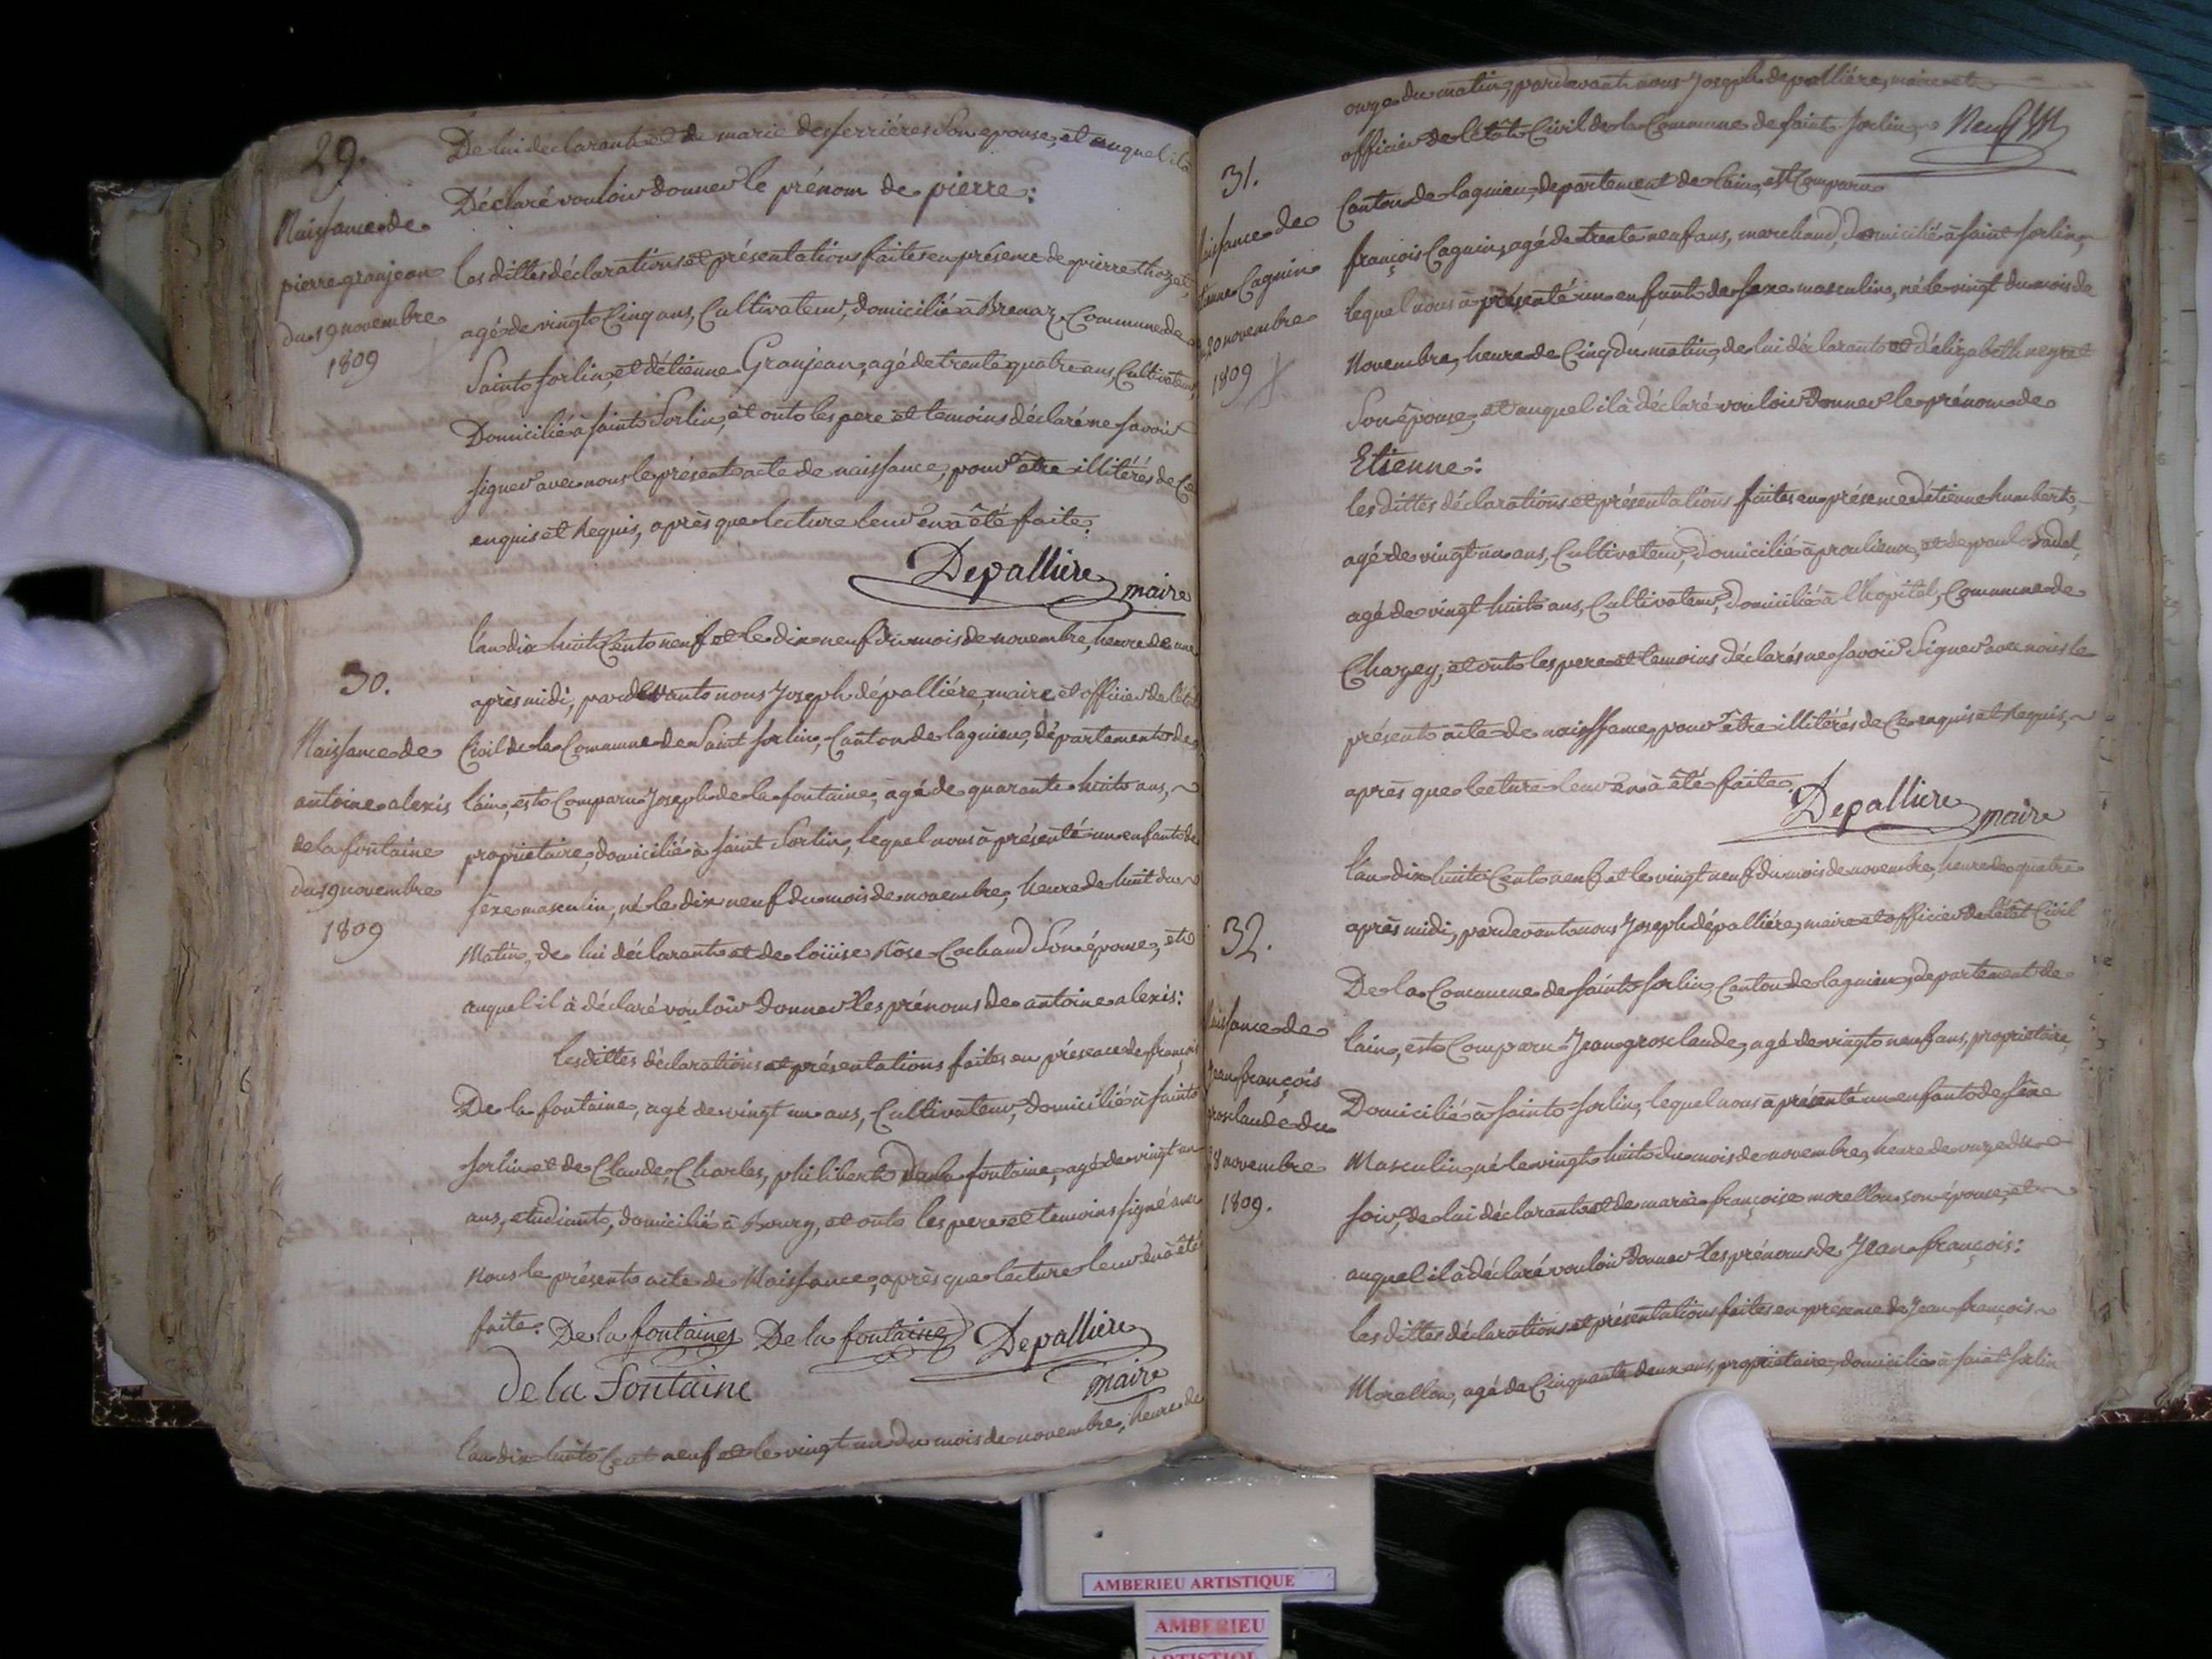 29.
Naissance de
pierre granjean
du 19 novembre
1809
De lui déclarant et de marie desferriéres Son epouse, et auquel il à
Déclaré vouloir donner le prénom de pierre:
les dittes déclarations et présentations faites en présence de pierre thozet,
agé de vingt Cinq ans, Cultivateur, domicilié à Brenaz Commune de
Saint Sorlin, et d'étienne Granjean, agé de trente quatre ans, Cultivateur,
Domicilié à saint Sorlin, et ont les pere et temoins déclaré ne savoir
signer avec nous le présent acte de naissance, pour être illitérés de Ce
enquis et Requis, après que lecture leur en à été faite.
Depalliere maire
30.
Naissance de
antoine alexis
de la fontaine
du 19 novembre
1809
l'an dix huit Cent neuf et le dix neuf du mois de novembre, heure de une
après midi, pardevant nous Joseph dépalliére, maire et officier de l'état
Civil de la Commune de Saint Sorlin, Canton de lagnieu, département de
l'ain, est Comparu Joseph de la fontaine, agé de quarante huit ans,
propriétaire, domicilié à saint Sorlin, lequel nous à présenté un enfant de
sexe masculin, né le dix neuf du mois de novembre, heure de huit du
Matin, de lui déclarant et de loüise Rose Cochand Son épouse, et
auquel il à déclaré vouloir donner les prénoms de antoine alexis:
les dittes déclarations et présentations faites en présence de françois
De la fontaine, agé de vingt un ans, Cultivateur, domicilié à saint
Sorlin et de Claude, Charles, philibert De la fontaine, agé de vingt un
ans, etudiant, domicilié à Bourg, et ont les pere et temoins signé avec
nous le présent acte de Naissance, après que lecture leur en à été
faite. De la fontaine De la fontaine Depalliere
De la Fontaine maire
l'an dix huit Cent neuf et le vingt un du mois de novembre, heure de
onze du matin, pardevant nous Joseph depalliére, maire et
officier de l'état Civil de la Commune de saint Sorlin, Neuf
31.
Naissance de
Etienne Cagnin
du 20 novembre
1809
Canton de lagnieu, departement de l'ain, est Comparu
françois Cagnin, agé de trente neuf ans, marchand, domicilié à saint Sorlin,
lequel nous à présenté un enfant de sexe masculin, né le vingt du mois de
Novembre, heure de Cinq du matin, de lui déclarant et d'élizabeth negret
Son épouse, et auquel il à déclaré vouloir donner le prénom de
Etienne:
les dittes déclarations et présentations faites en présence d'étienne humbert,
agé de vingt un ans, Cultivateur, domicilié à proulieux, et de paul Sadet,
agé de vingt huit ans, Cultivateur, domicilié à l'hopital, Commune de
Chazey, et ont les pere et temoins déclarés ne savoir Signer avec nous le
présent acte de naissance, pour être illitérés de Ce enquis et Requis,
après que lecture leur en à été faite
Depalliere maire
32.
Naissance de
jean françois
grosclaude du
28 novembre
1809.
l'an dix huit Cent neuf et le vingt neuf du mois de novembre, heure de quatre
après midi, pardevant nous Joseph dépalliére, maire et officier de l'état Civil
De la Commune de saint Sorlin, Canton de lagnieu, departement de
l'ain, est Comparu Jean grosclaude, agé de vingt neuf ans, propriétaire,
Domicilié à saint Sorlin, lequel nous à présenté un enfant de sexe
Masculin, né le vingt huit du mois de novembre, heure de onze du
soir, de lui déclarant et de marie françoise morellon son épouse, et
auquel il à déclaré vouloir donner les prénoms de Jean françois:
les dittes déclarations et présentations faites en présence de Jean françois
Morellon, agé de Cinquante deux ans, propriétaire, domicilié à saint Sorlin
AMBERIEU ARTISTIQUE
AMBERIEU
ARTISTIQUE